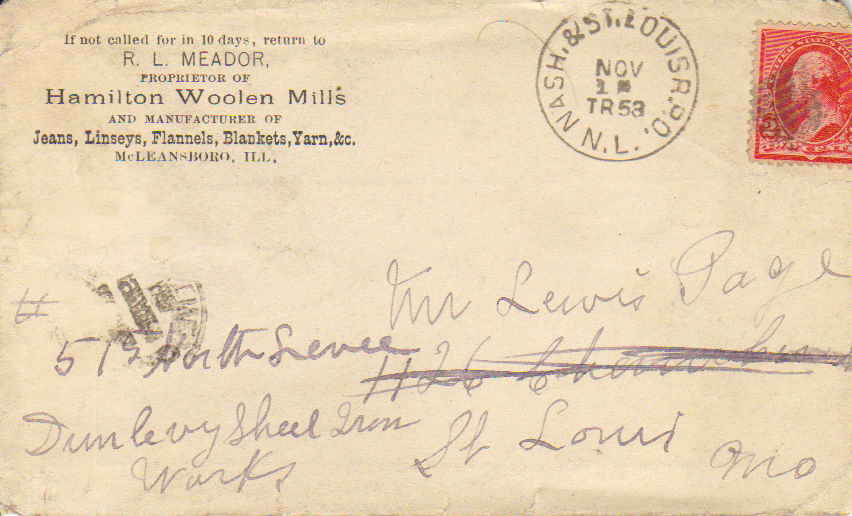 If not called for in 10 days, return to
R. L. MEADOR,
PROPRIETOR OF
Hamilton Woolen Mills
AND MANUFACTURER OF
Jeans, Linseys, Flannels, Blankets, Yarn, &c.
McLEANSBORO, ILL.
NASH. & ST. LOUIS R.P.O.
NOV
1
TR 53
N.L.
Mr Lewis Page
#
517 North Levee
1126
Dunlevy Sheet Iron
Works
St Louis
Mo